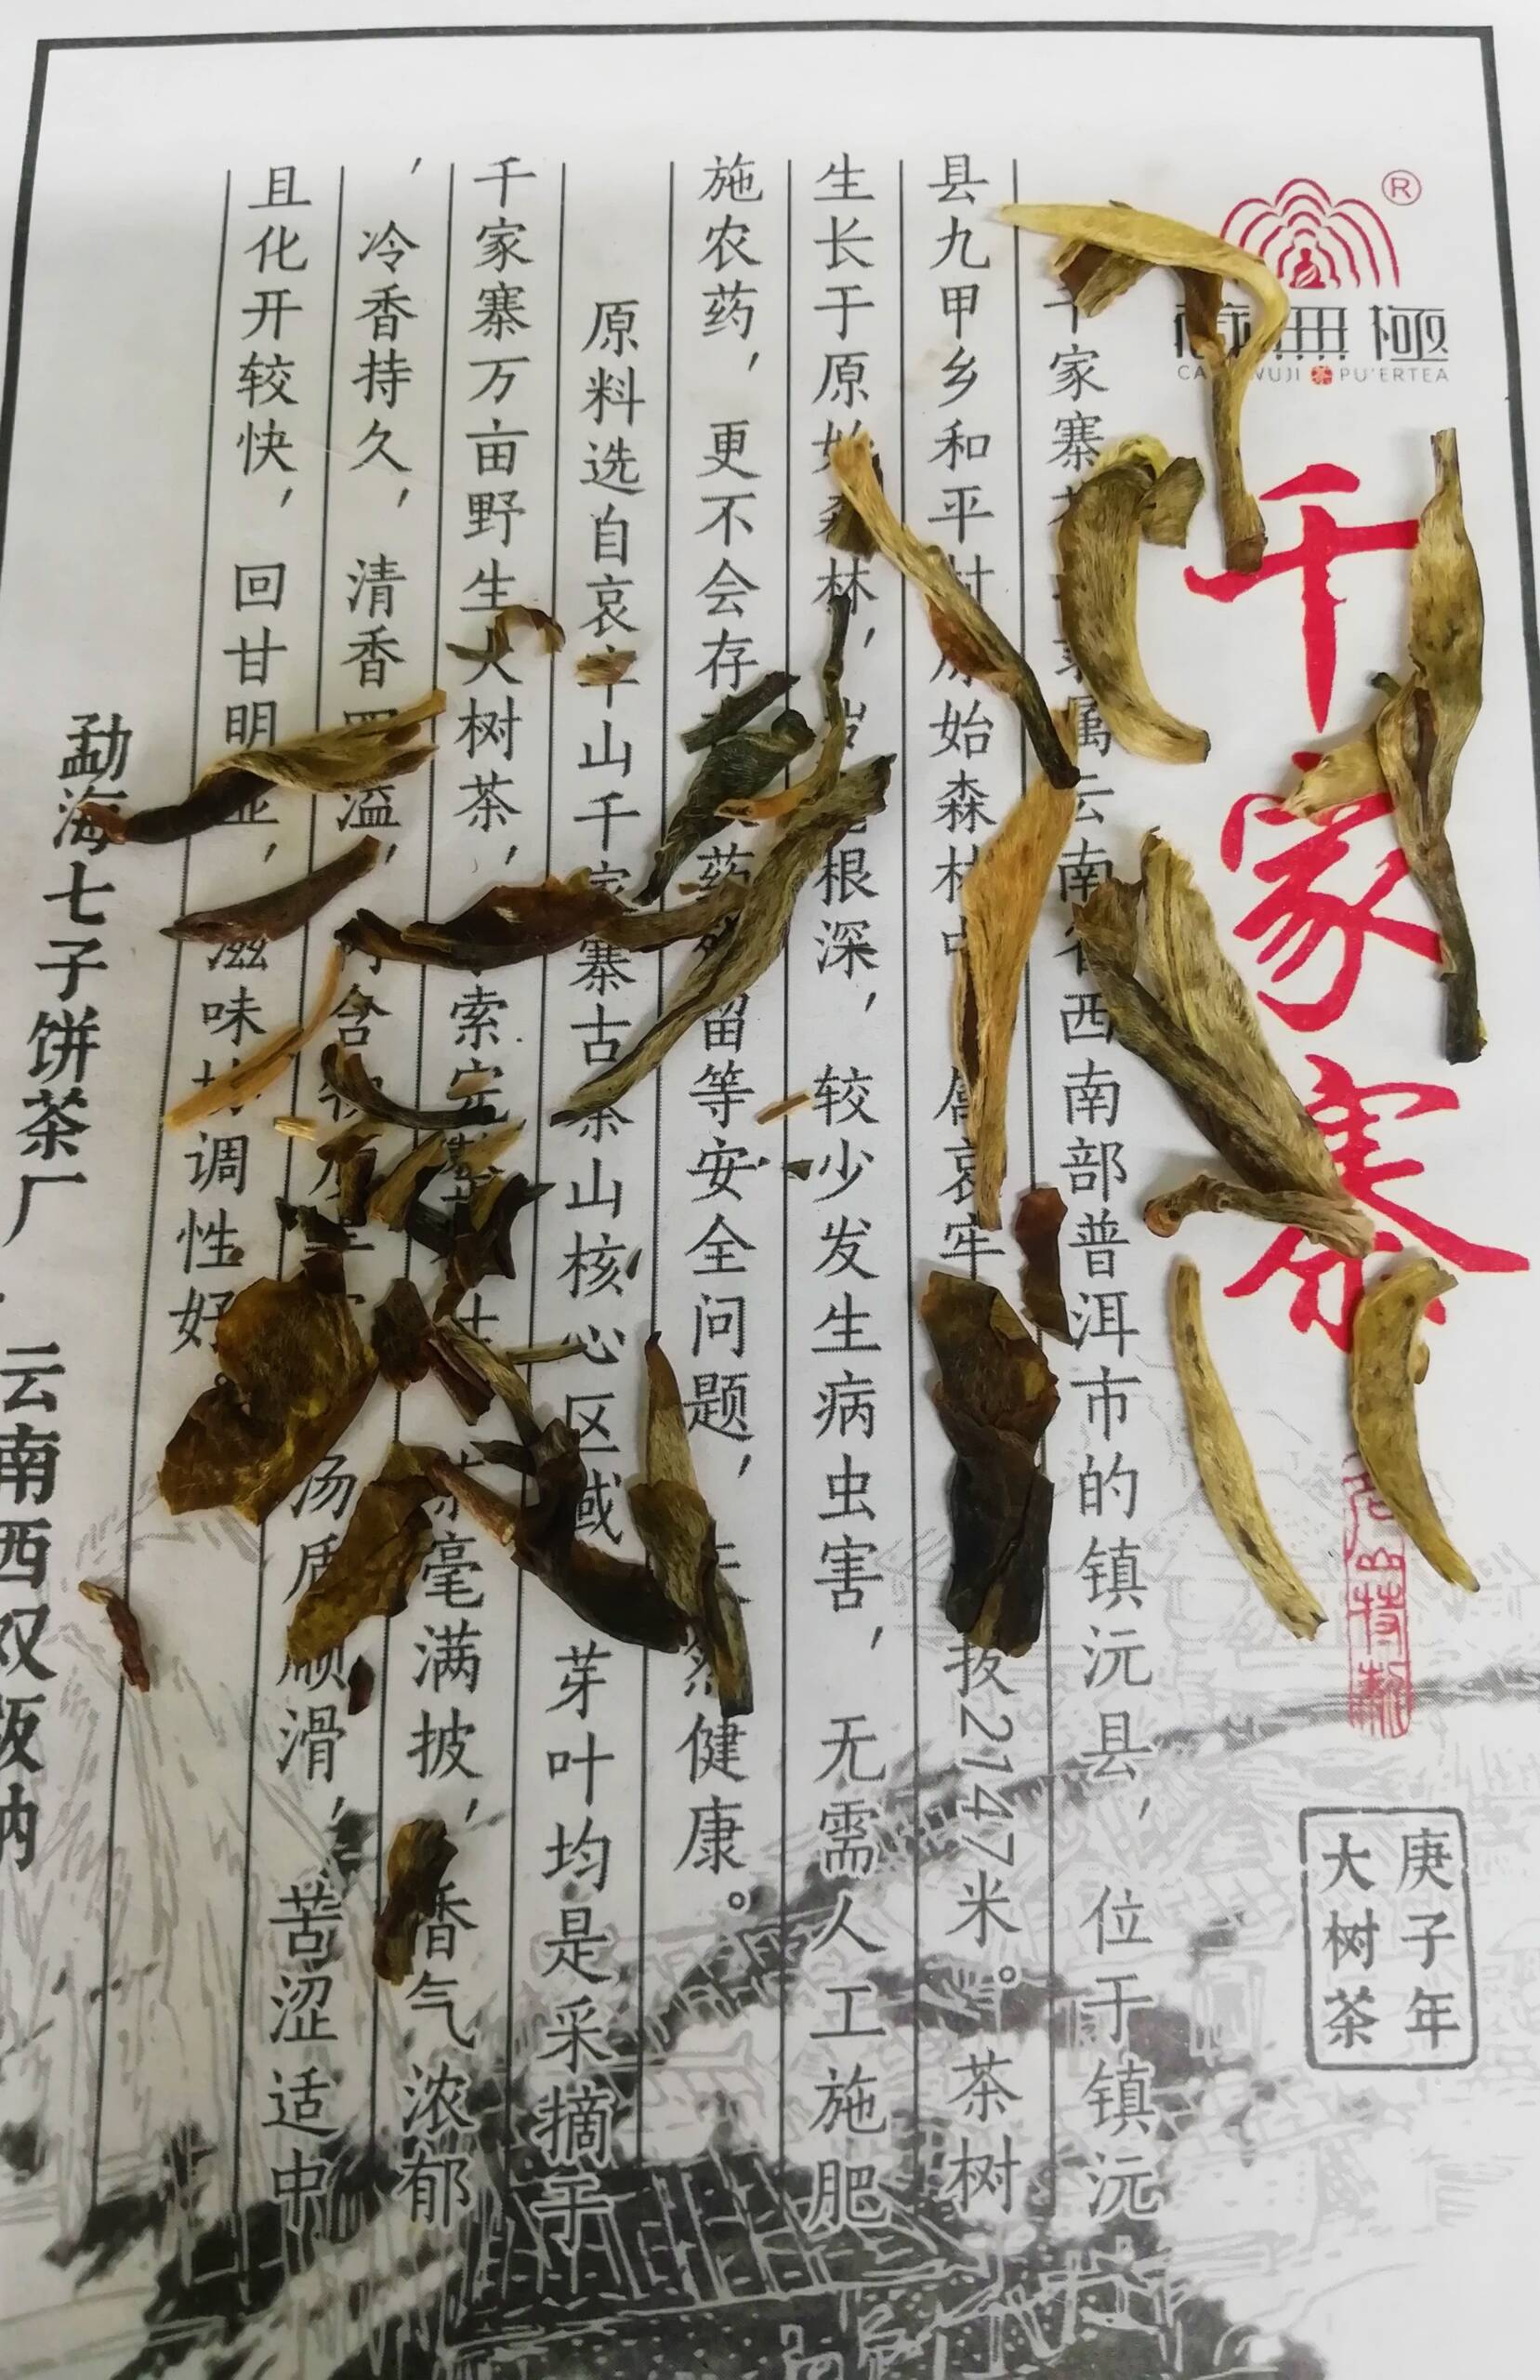 ®
無極
WUJI PU'ERTEA
千家寨
特制
庚子年
大树茶
家寨 属云南省西南部普洱市的镇沅县，位于镇沅
县九甲乡和平村原始森林中 哀牢 拔2147米。茶树
生长于原始森林， 根深，较少发生病虫害，无需人工施肥
施农药，更不会存 药 留等安全问题， 健康。
原料选自哀牢山千家寨古茶山核心区域 芽叶均是采摘于
千家寨万亩野生大树茶， 索完整 毫满披，香气浓郁
，冷香持久，清香四溢， 含 汤质顺滑，苦涩适中
且化开较快，回甘明显，滋味协调性好
勐海七子饼茶厂.云南西双版纳